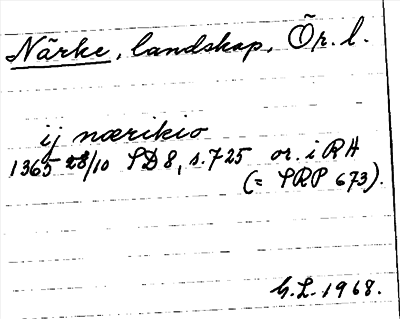 Närke, landskap, Ör. l.
ij nærikio
1365 28/10 SD 8, s. 725 or. i RA
(= SRP 673).
G.L. 1968.